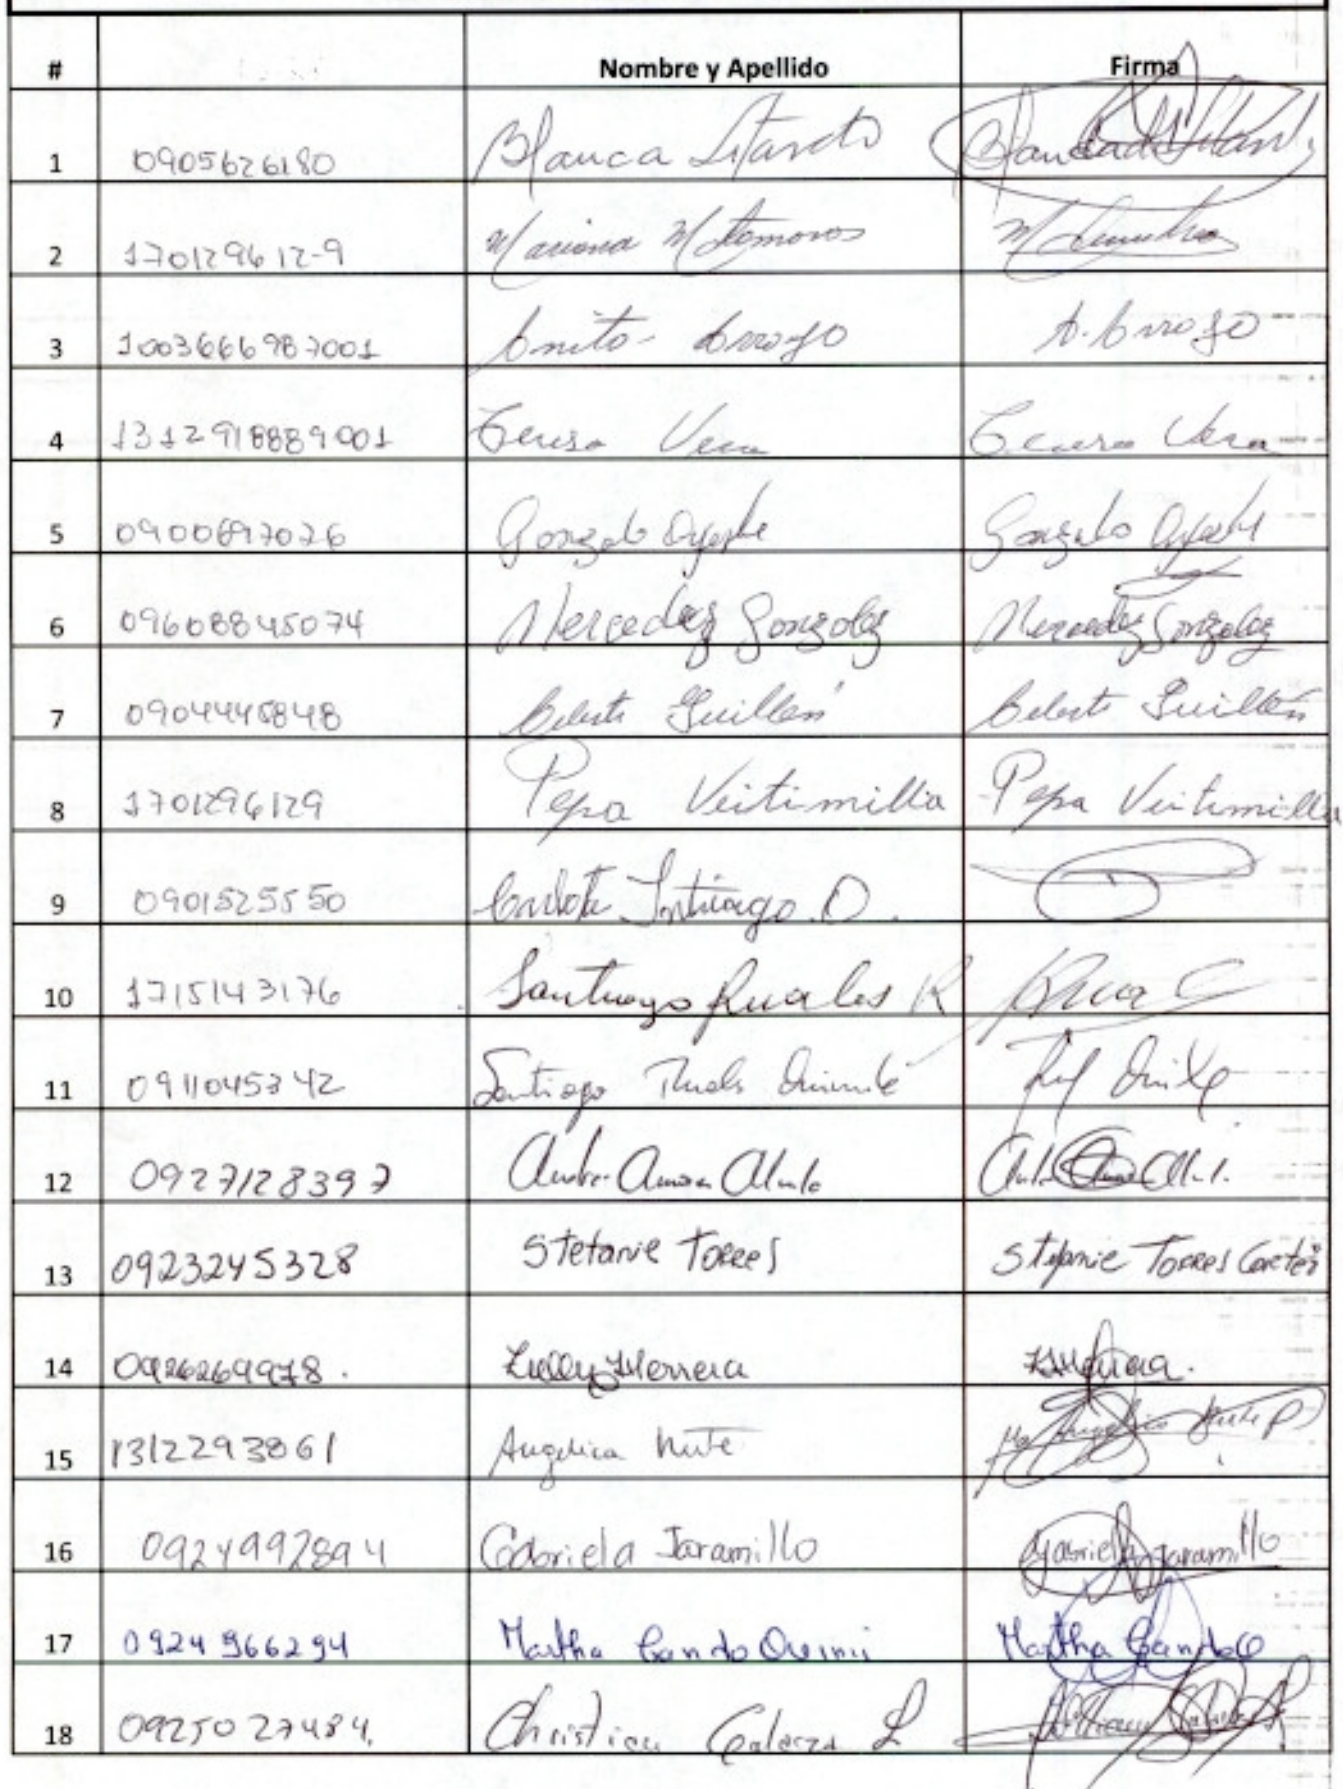 # Nombre y Apellido Firma
1 0905626180 Blanca Litardo
2 170129612-9 Mariana Matamoros
3 1003666987001 Anita Arroyo A. Arroyo
4 1312918889001 Teresa Vera Teresa Vera
5 0900697026 Gonzalo Ayarde Gonzalo Ayarde
6 09608845074 Mercedez Gonzalez Mercedez Gonzalez
7 0904445848 Celeste Guillén Celeste Guillén
8 1701296129 Pepa Veitimilla Pepa Veitimilla
9 0901525550 Carlota Intriago O.
10 1715143176 Santiago Ruales R
11 0911045342 Santiago
12 0927128397
13 0923245328 Stefanie Torres Stefanie Torres
14 0926269978. Zully Herrera
15 1312293861 Angelica
16 0924992894 Gabriela Jaramillo Gabriela Jaramillo
17 0924966294 Martha Gando Martha Gando
18 0925027484. Christian L